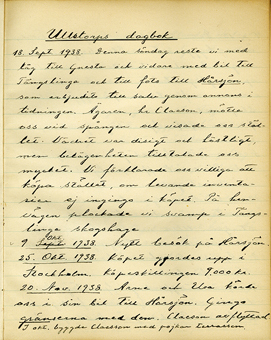 Ullstorps dagbok
18. Sept 1938. Denna söndag reste vi med
tåg till Gnesta och vidare med bil till
Långslinga och till fots till Hörsjön,
som erbjudits till salu genom annons i
tidningen. Ägaren, hr Claeson, mötte
oss vid spången och visade oss stäl-
let. Vädret var disigt och höstligt,
men belägenheten tilltalade oss
mycket. Vi förklarade oss villiga att
köpa stället, om levande inventa-
rier ej ingingo i köpet. På hem-
vägen plockade vi svamp i Långs-
linga skogshage
9 Sept Okt 1938. Nytt besök på Hörsjön.
25. Okt. 1938. Köpet gjordes upp i
Stockholm. Köpeskillingen 9,000 kr.
20. Nov. 1938. Arne och Uva körde
oss i sin bil till Hörsjön. Gingo
gränserna med dem. Claeson avflyttad
I okt. byggde Claeson med pojkar terrassen.